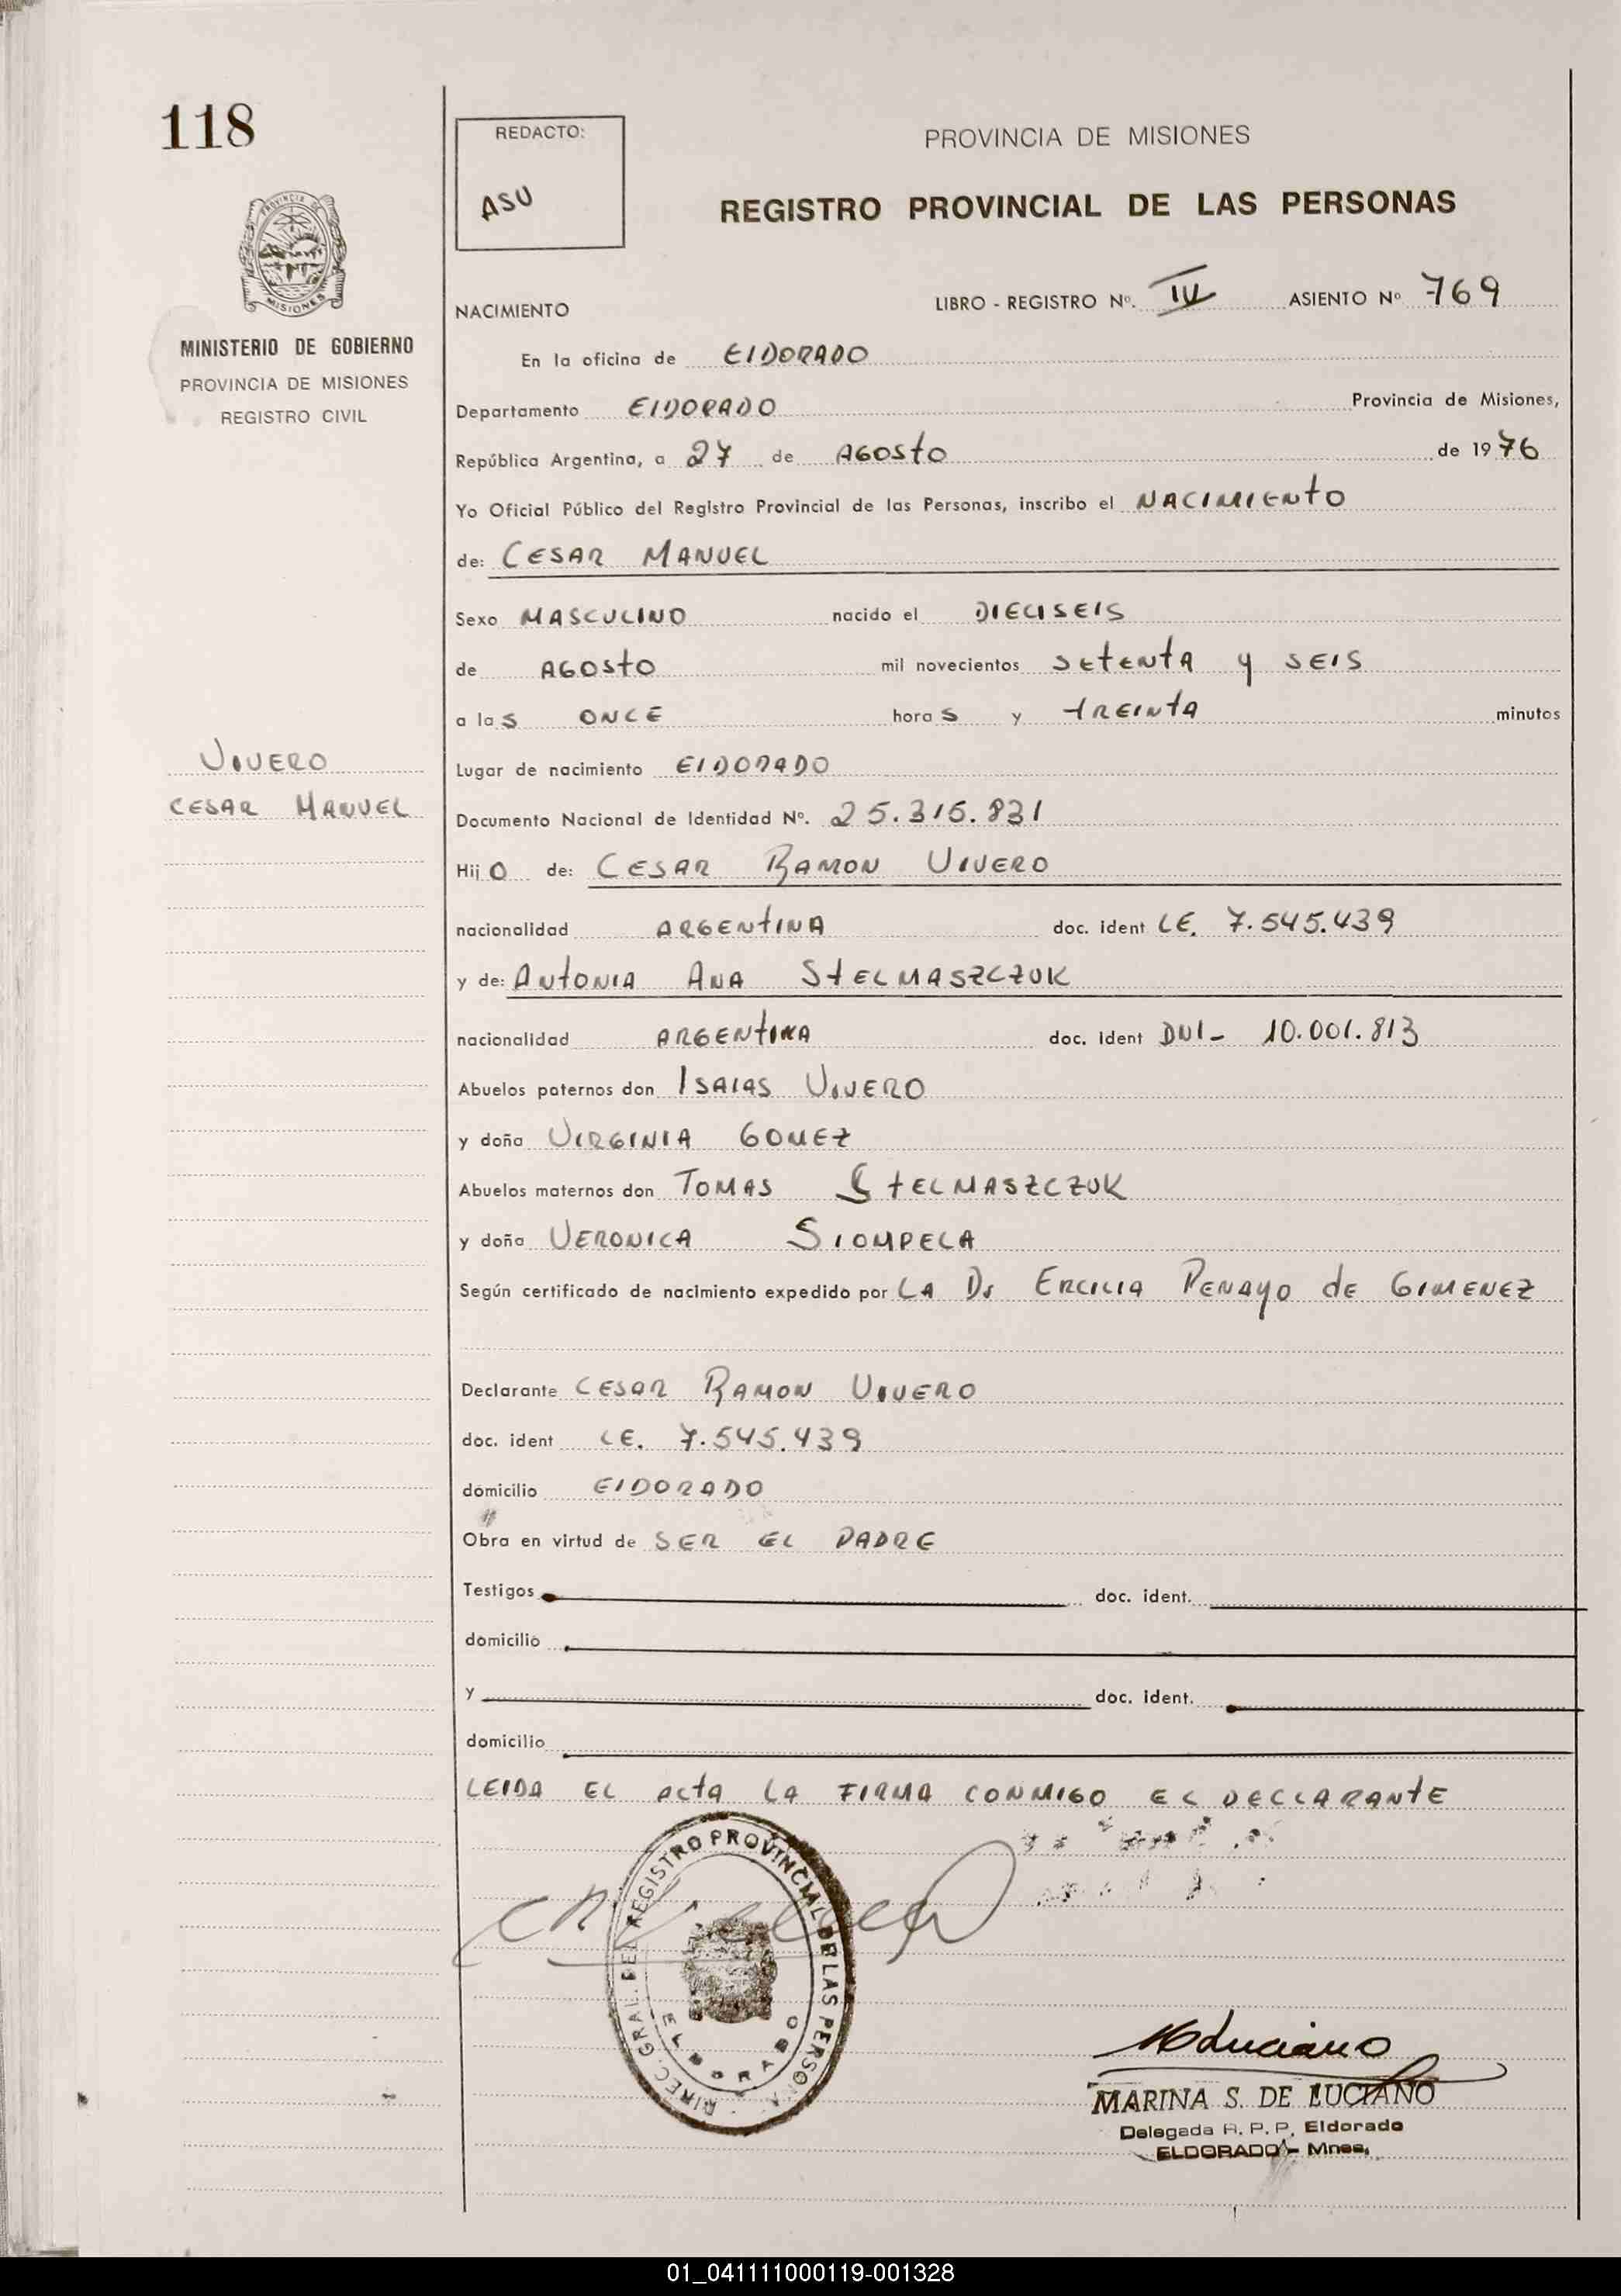 118
REDACTO:
ASU
PROVINCIA DE MISIONES
REGISTRO PROVINCIAL DE LAS PERSONAS
PROVINCIA DE
MISIONES
MINISTERIO DE GOBIERNO
PROVINCIA DE MISIONES
REGISTRO CIVIL
NACIMIENTO LIBRO - REGISTRO Nº. IV ASIENTO Nº 769
En la oficina de ElDORADO
Departamento ElDORADO Provincia de Misiones,
República Argentina, a 27 de AGOSto de 1976
Yo Oficial Público del Registro Provincial de las Personas, inscribo el NACIMIENtO
de: CESAR MANUEL
Sexo MASCULINO nacido el DIECISEIS
de AGOSto mil novecientos SEtENtA y SEIS
a las ONCE horas y tREINtA minutos
VIVERO
CESAR MANUEL
Lugar de nacimiento ElDORADO
Documento Nacional de Identidad Nº. 25.315.831
Hijo de: CESAR RAMON VIVERO
nacionalidad ARGENtINA doc. ident LE. 7.545.439
y de: ANtONIA ANA StELMASZCZUK
nacionalidad ARGENtINA doc. ident DNI- 10.001.813
Abuelos paternos don ISAIAS VIVERO
y doña VIRGINIA GOMEZ
Abuelos maternos don TOMAS StELMASZCZUK
y doña VERONICA SIOMPELA
Según certificado de nacimiento expedido por LA Dr ERCILIA PENAyO dE GIMENEZ
Declarante CESAR RAMON VIVERO
doc. ident LE. 7.545.439
domicilio ElDORADO
Obra en virtud de SER EL PADRE
Testigos doc. ident.
domicilio
y doc. ident.
domicilio
LEIDA EL ActA LA FIRMA CONMIGO EL DECLARANtE
DIREC. GRAL. DEL REGISTRO PROVINCIAL DE LAS PERSONAS
ELDORADO
MARINA S. DE LUCIANO
Delegada R. P. P. Eldorado
ELDORADO - Mnes.
01_041111000119-001328